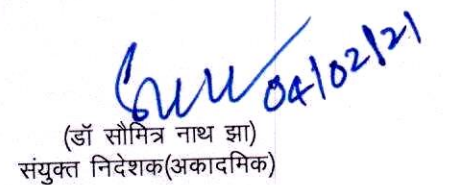 04/02/21
(डॉ सौमित्र नाथ झा)
संयुक्त निदेशक(अकादमिक)